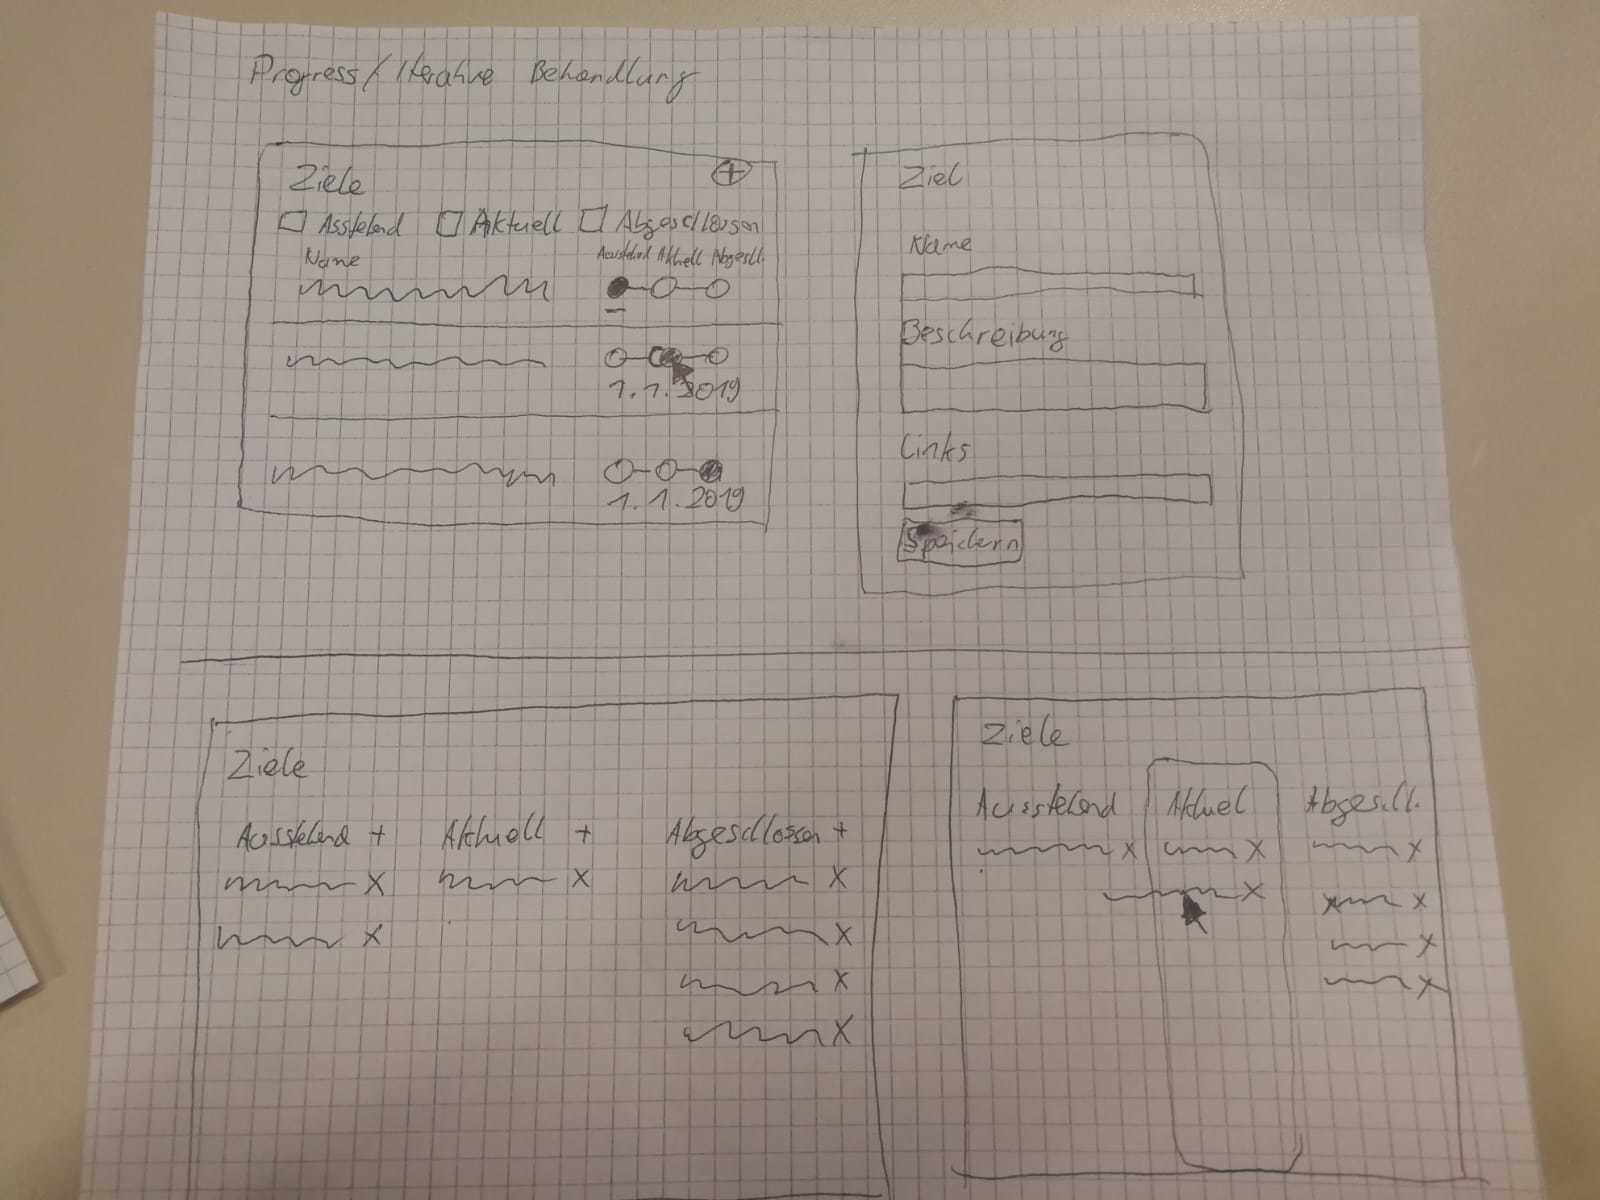 Progress/Iterative Behandlung
Ziele +
Asstehend Aktuell Abgeschlossen
Name Ausstehend Aktuell Abgeschl.
1.1.2019
1.1.2019
Ziel
Name
Beschreibung
Links
Speichern
Ziele
Ausstehend + Aktuell + Abgeschlossen +
X X X
X X
X
X
Ziele
Ausstehend Aktuel Abgeschl.
X X X
X X
X
X